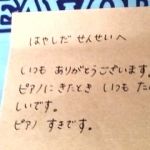 はやしだ せんせいへ
いつも ありがとうございます。
ピアノに きたとき いつも たの
しいです。
ピアノ すきです。